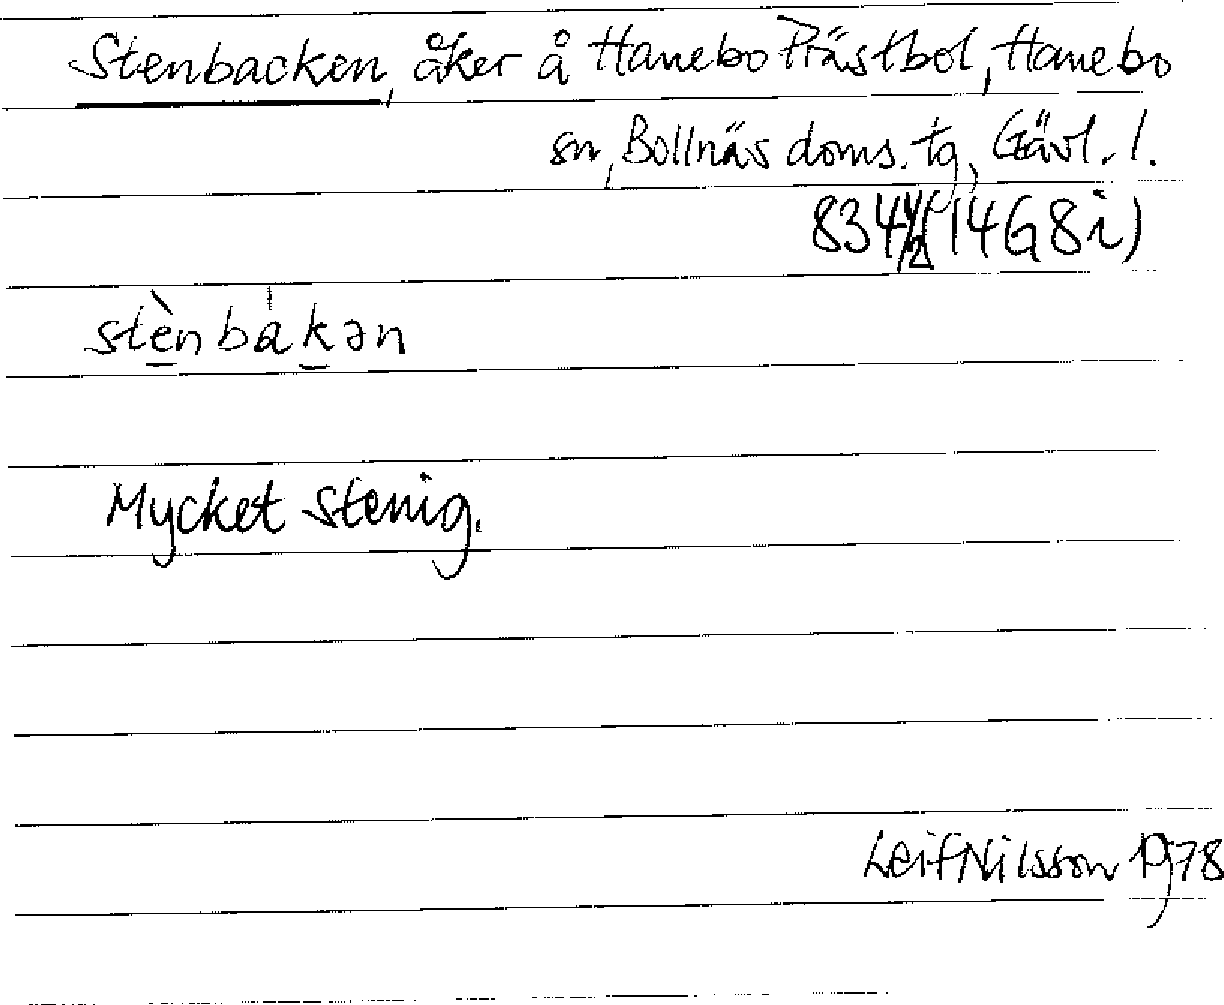 Stenbacken, åker å Hanebo Prästbol, Hanebo
sn, Bollnäs doms. tg, Gävl. l.
834 (14G8i)
stènbákən
Mycket stenig.
Leif Nilsson 1978